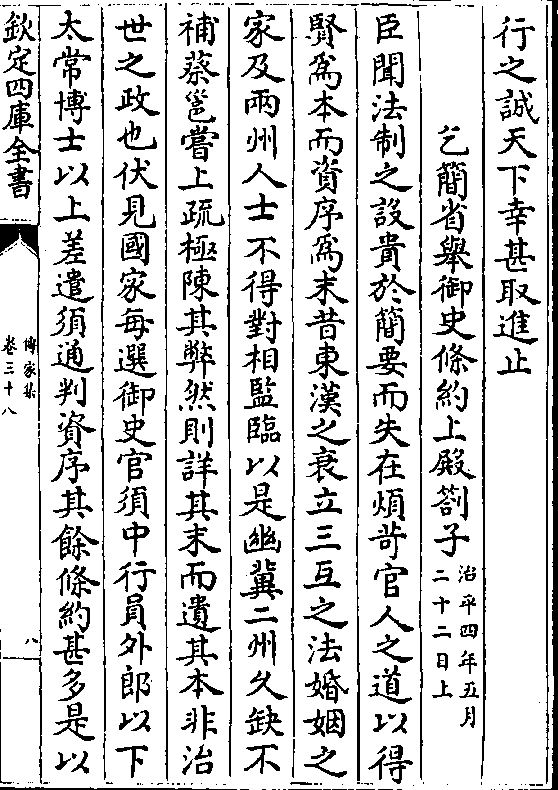 行之誠天下幸甚取進止
乞簡省舉御史條約上殿劄子治平四年五月二十二日上
臣聞法制之設貴於簡要而失在煩苛官人之道以得
賢爲本而資序爲末昔東漢之衰立三互之法婚姻之
家及兩州人士不得對相監臨以是幽冀二州久缺不
補蔡邕嘗上疏極陳其弊然則詳其末而遺其本非治
世之政也伏見國家每選御史官須中行員外郎以下
太常博士以上差遣須通判資序其餘條約甚多是以
欽定四庫全書
傳家集
卷三十八
八